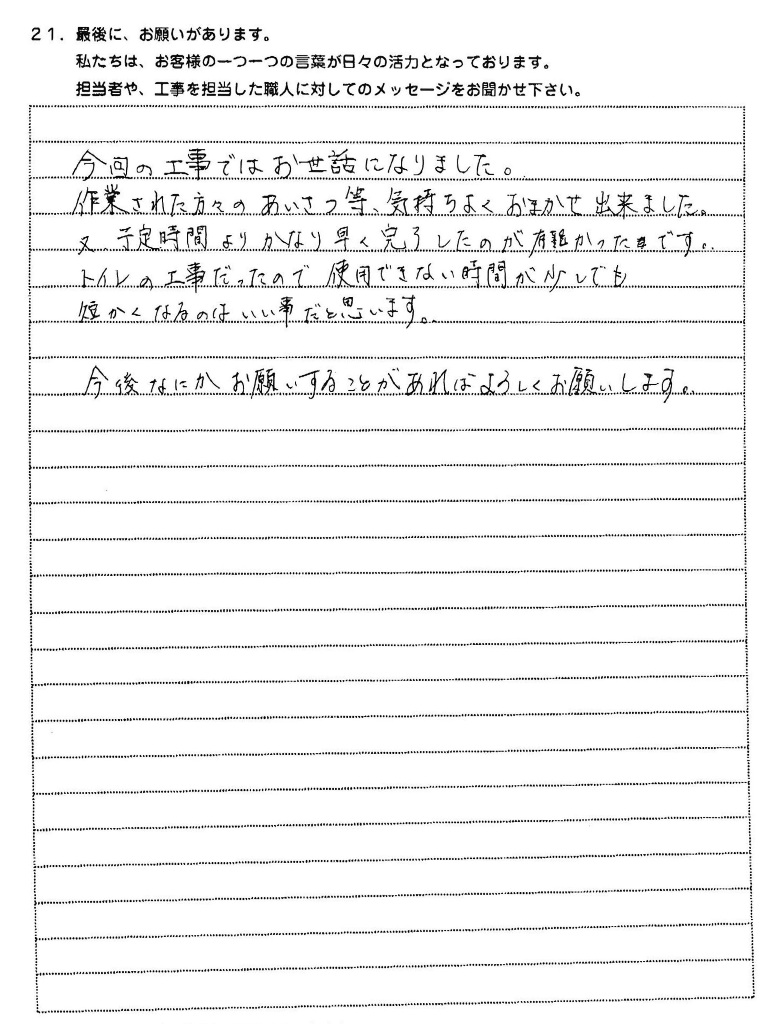 21. 最後に、お願いがあります。
私たちは、お客様の一つ一つの言葉が日々の活力となっております。
担当者や、工事を担当した職人に対してのメッセージをお聞かせ下さい。
今回の工事ではお世話になりました。
作業された方々のあいさつ等、気持ちよくおまかせ出来ました。
又、予定時間よりかなり早く完了したのが有難かったです。
トイレの工事だったので使用できない時間が少しでも
短かくなるのはいい事だと思います。
今後なにかお願いすることがあればよろしくお願いします。